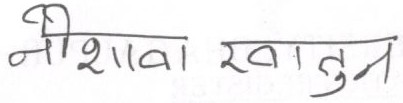 नौशावा खातुन